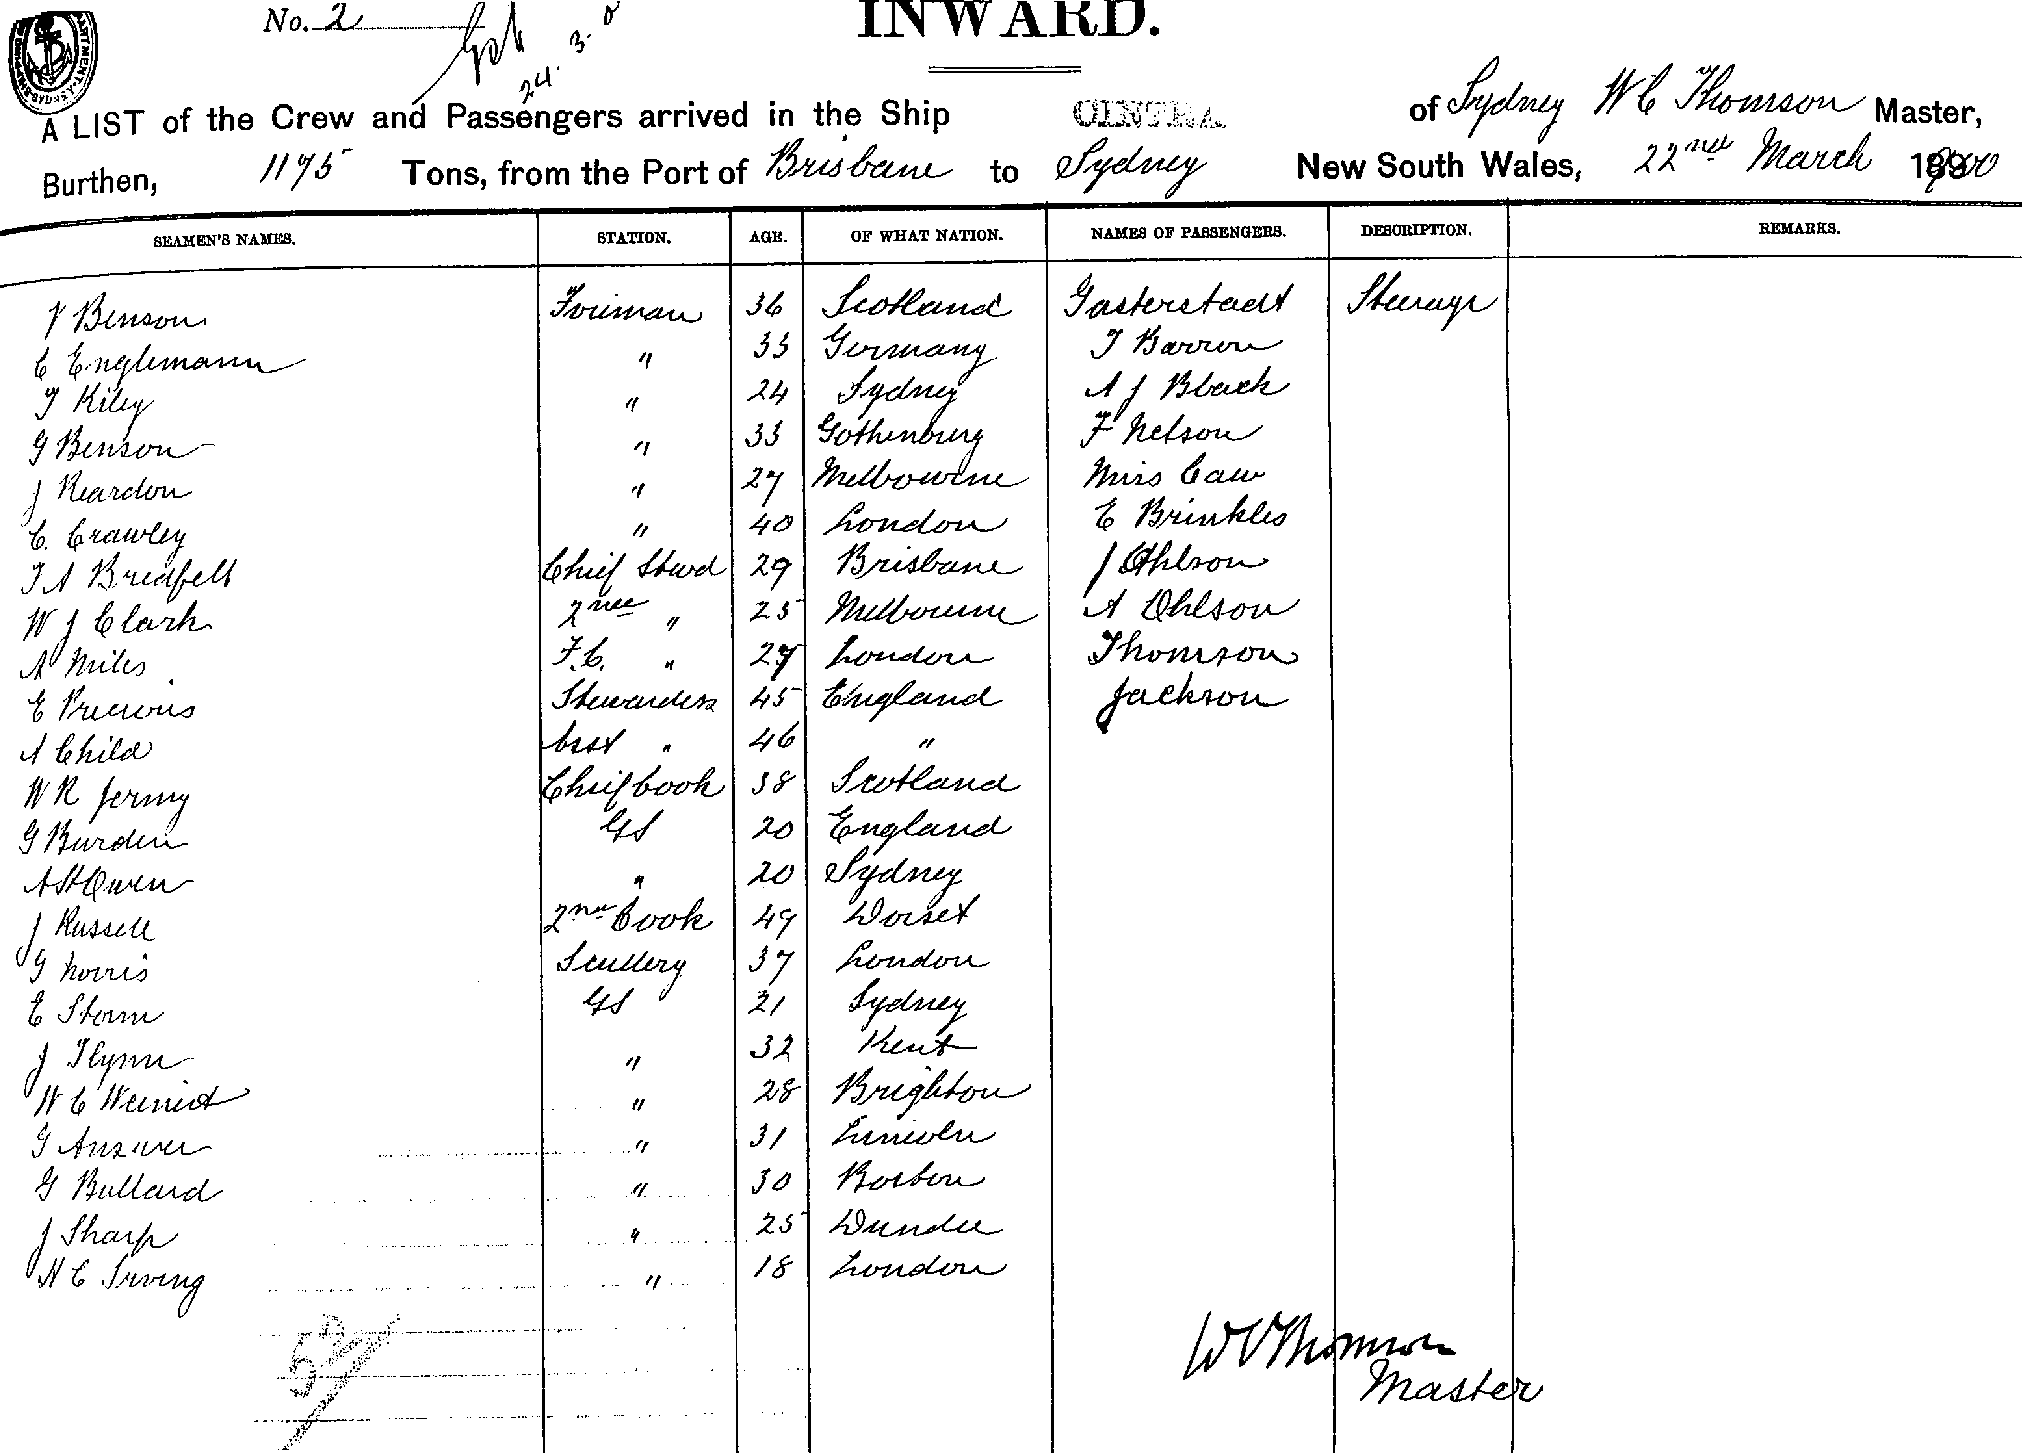 No. 2
INWARD.
24. 3. 0
A LIST of the Crew and Passengers arrived in the Ship CINTRA of Sydney W C Thomson Master,
Burthen, 1175 Tons, from the Port of Brisbane to Sydney New South Wales, 22nd March 1900
SEAMEN'S NAMES. STATION. AGE. OF WHAT NATION. NAMES OF PASSENGERS. DESCRIPTION. REMARKS.
Benson Foreman 36 Scotland Gasterstadt Steerage
C Englemann " 33 Germany T Barron
T Kiley " 24 Sydney A J Black
G Benson " 33 Gothenburg F Nelson
J Reardon " 27 Melbourne Miss Caw
C. Crawley " 40 London E Brinkles
T A Bredfelt Chief Stwd 29 Brisbane J Ohlson
W J Clark 2nd " 25 Melbourne A Ohlson
A Miles F.C. " 27 London Thomson
E Precious Stewardess 45 England Jackson
A Child Asst " 46 "
W R Jermy Chief Cook 38 Scotland
G Burden GS 20 England
A St Owen " 20 Sydney
J Russell 2nd Cook 49 Dorset
G Norris Scullery 37 London
E Storm GS 21 Sydney
J Flynn " 32 Kent
W C " 28 Brighton
G " 31 Lincoln
G Bullard " 30 Boston
J Sharp " 25 Dundee
H C Irving " 18 London
52
W C Thomson
Master